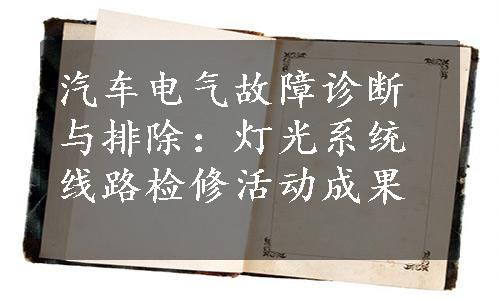 汽车电气故障诊断
与排除：灯光系统
线路检修活动成果